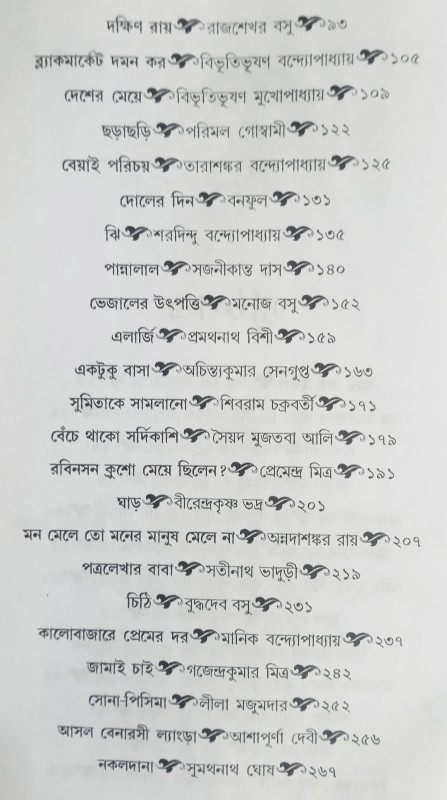 দক্ষিণ রায় রাজশেখর বসু ৯৩
ব্ল্যাকমার্কেট দমন কর বিভূতিভূষণ বন্দ্যোপাধ্যায় ১০৫
দেশের মেয়ে বিভূতিভূষণ মুখোপাধ্যায় ১০৯
ছড়াছড়ি পরিমল গোস্বামী ১২২
বেয়াই পরিচয় তারাশঙ্কর বন্দ্যোপাধ্যায় ১২৫
দোলের দিন বনফুল ১৩১
ঝি শরদিন্দু বন্দ্যোপাধ্যায় ১৩৫
পান্নালাল সজনীকান্ত দাস ১৪০
ভেজালের উৎপত্তি মনোজ বসু ১৫২
এলার্জি প্রমথনাথ বিশী ১৫৯
একটুকু বাসা অচিন্ত্যকুমার সেনগুপ্ত ১৬৩
সুমিতাকে সামলানো শিবরাম চক্রবর্তী ১৭১
বেঁচে থাকো সর্দিকাশি সৈয়দ মুজতবা আলি ১৭৯
রবিনসন ক্রুশো মেয়ে ছিলেন? প্রেমেন্দ্র মিত্র ১৯১
ঘাড় বীরেন্দ্রকৃষ্ণ ভদ্র ২০১
মন মেলে তো মনের মানুষ মেলে না অন্নদাশঙ্কর রায় ২০৭
পত্রলেখার বাবা সতীনাথ ভাদুড়ী ২১৯
চিঠি বুদ্ধদেব বসু ২৩১
কালোবাজারে প্রেমের দর মানিক বন্দ্যোপাধ্যায় ২৩৭
জামাই চাই গজেন্দ্রকুমার মিত্র ২৪২
সোনা-পিসিমা লীলা মজুমদার ২৫২
আসল বেনারসী ল্যাংড়া আশাপূর্ণা দেবী ২৫৬
নকলদানা সুমথনাথ ঘোষ ২৬৭